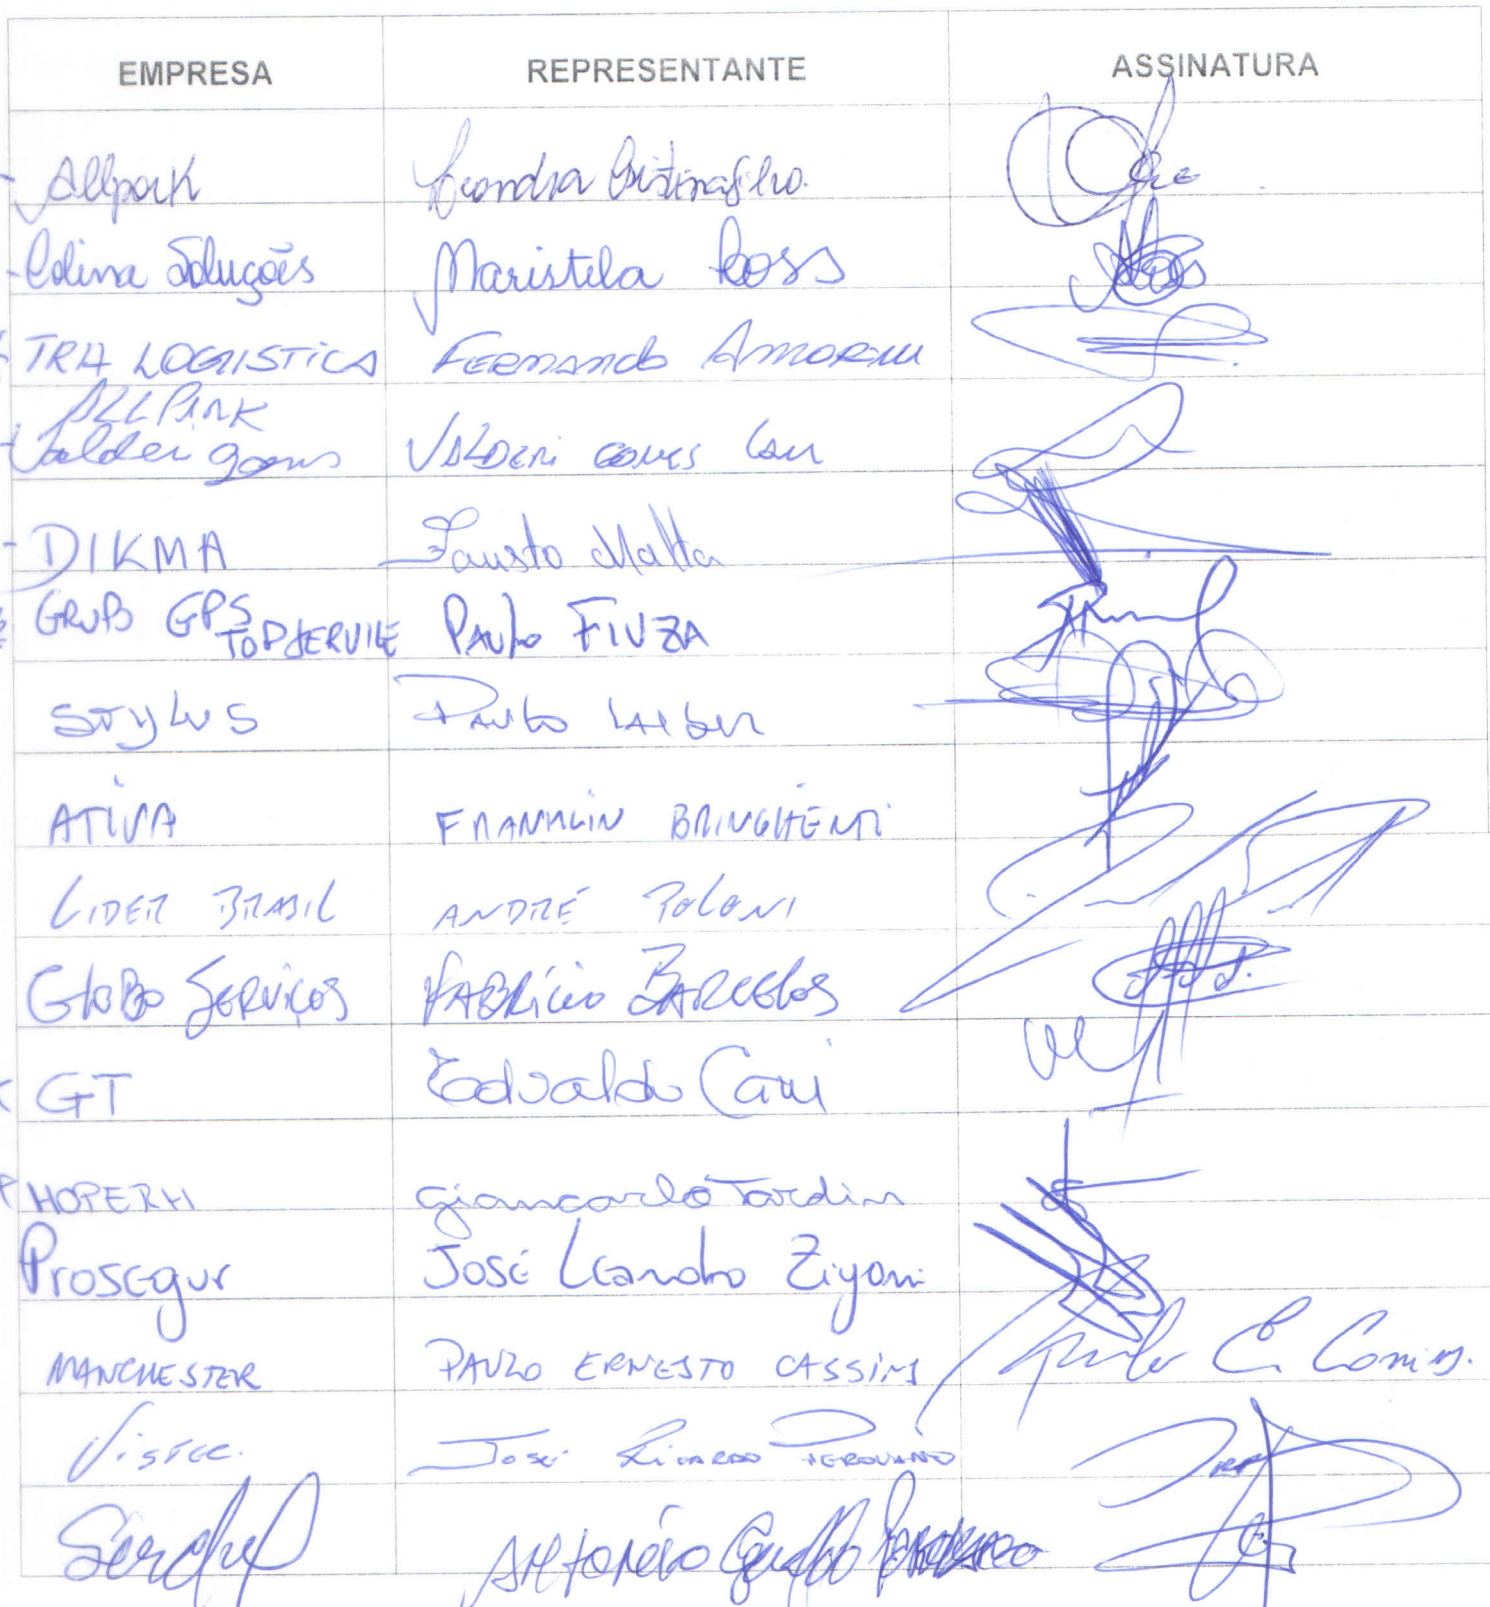 EMPRESA REPRESENTANTE ASSINATURA
Allpark Leandra Cristina
Colina Soluções Maristela Ross
TRA LOGISTICA FERNANDO AMORIM
ALLPARK
Valderi gomes VALDERI GOMES
DIKMA Fausto Malta
GRUPO GPS
TOPSERVICE PAULO FIUZA
STYLUS PAULO
ATIVA FRANKLIN BRINGHENTI
LIDER BRASIL ANDRÉ POLONI
GLOBO SERVIÇOS FABRÍCIO BARCELOS
GT Edvaldo
HOPERH giancarlo Tardin
Prosegur José Leandro Zigoni
MANCHESTER PAULO ERNESTO CASSINI
VISTEC. JOSÉ RICARDO PEROVANO
ANTONIO